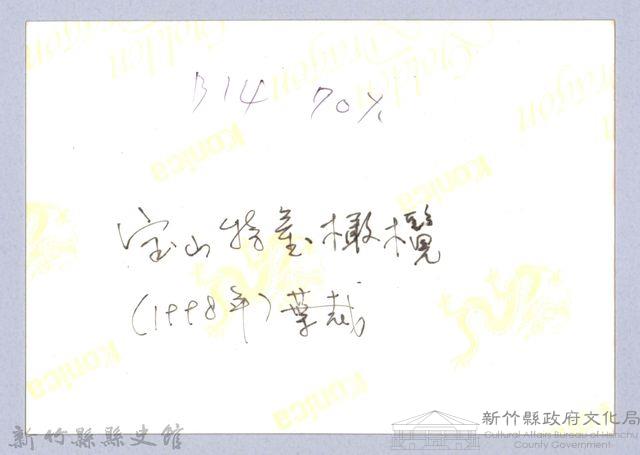 B14 70%
宝山特產橄欖
(1998年)葉裁
Konica
Golden
Dragon
Konica
Konica
Konica
新竹縣縣史館
新竹縣政府文化局
Cultural Affairs Bureau of Hsinchu
County Government